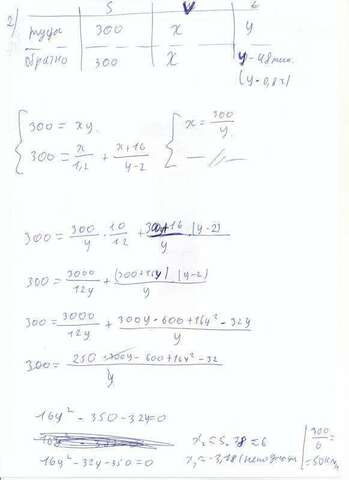 2)
S V t
туда 300 x y
обратно 300 x y-48 мин.
(y-0,8ч)
300 = xy.
x = 300/y.
300 = x/1,2 + x+16/y-2
300 = 300/y · 10/12 + (y-2)
300 = 3000/12y + (300+16y)(y-2)/y
300 = 3000/12y + 300y-600+16y²-32y/y
300 = 250-300y-600+16y²-32/y
16y²-350-32y=0
16y²-32y-350=0
x₂≈5,78≈6
300/6
=50км/ч